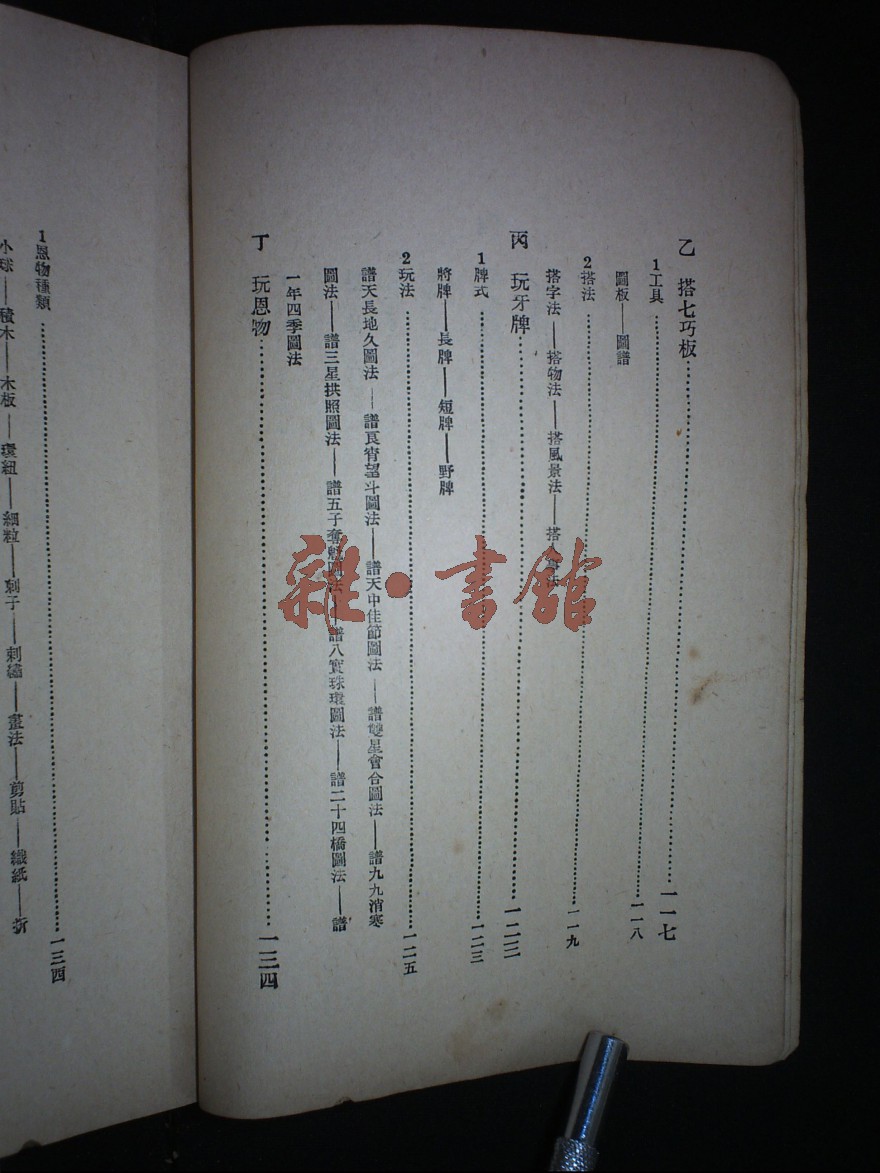 乙 搭七巧板……一一七
1工具……一一八
圖板——圖譜
2搭法……一一九
搭字法——搭物法——搭風景法——搭人事法
丙 玩牙牌……一二三
1牌式……一二三
將牌——長牌——短牌——野牌
2玩法……一二五
譜天長地久圖法——譜良宵望斗圖法——譜天中佳節圖法——譜雙星會合圖法——譜九九消寒
圖法——譜三星拱照圖法——譜五子奪魁圖法——譜八寶珠環圖法——譜二十四橋圖法——譜
一年四季圖法
丁 玩恩物……一三四
1恩物種類……一三四
小球——積木——木板——環紐——細粒——刺子——刺繡——畫法——剪貼——織紙——折
雜·書館